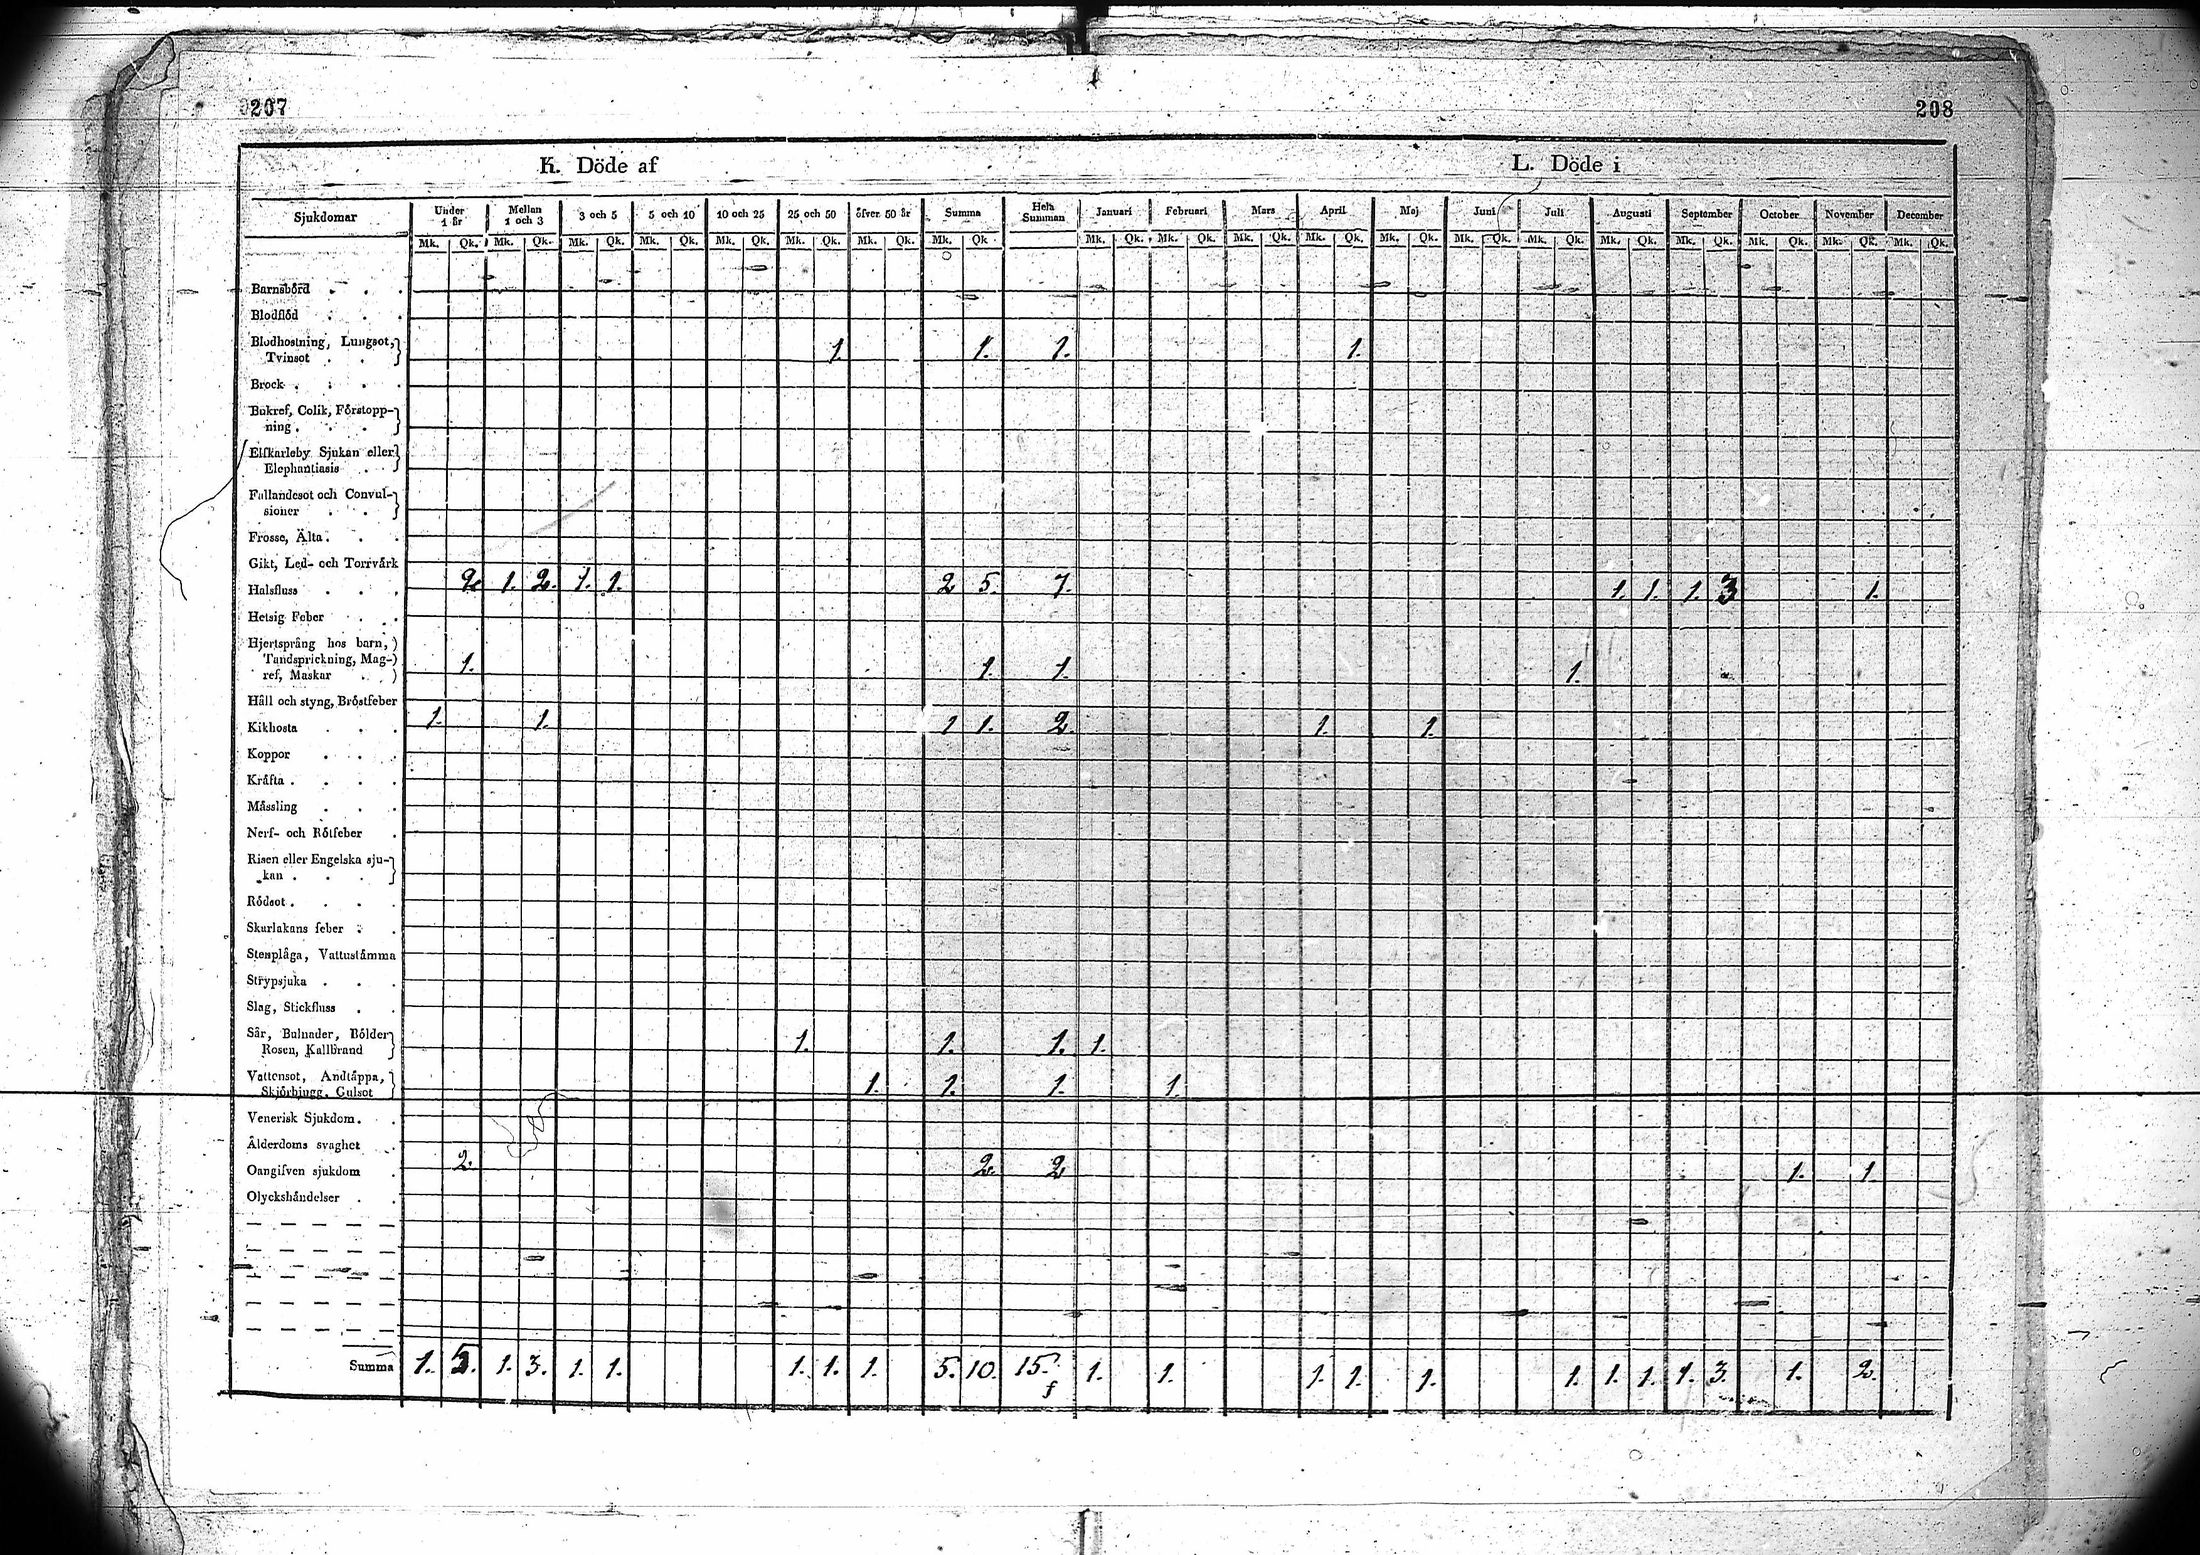 207
208
K. Döde af
L. Döde i
Sjukdomar Under 1 år Mellan 1 och 3 3 och 5 5 och 10 10 och 25 25 och 50 öfver 50 år Summa Hela Summan Januari Februari Mars April Maj Juni Juli Augusti September October November December
Mk. Qk. Mk. Qk. Mk. Qk. Mk. Qk. Mk. Qk. Mk. Qk. Mk. Qk. Mk. Qk. Mk. Qk. Mk. Qk. Mk. Qk. Mk. Qk. Mk. Qk. Mk. Qk. Mk. Qk. Mk. Qk. Mk. Qk. Mk. Qk. Mk. Qk. Mk. Qk.
Barnsbörd . . .
Blodflöd . . .
Blodhostning, Lungsot,
Tvinsot . . 1. 1. 1. 1.
Brock . . . .
Bukref, Colik, Förstopp-
ning . . .
Elfkarleby Sjukan eller
Elephantiasis .
Fallandesot och Convul-
sioner . .
Frosse, Älta . . .
Gikt, Led- och Torrvärk
Halsfluss . . . 2. 1. 2. 1. 1. 2 5. 7. 1. 1. 1. 3 1.
Hetsig Feber . .
Hjertsprång hos barn,
Tandsprickning, Mag-
ref, Maskar . 1. 1. 1. 1.
Håll och styng, Bröstfeber
Kikhosta . . . 1. 1. 1 1. 2. 1. 1.
Koppor . . .
Kräfta . . . .
Mässling . . .
Nerf- och Rötfeber .
Risen eller Engelska sju-
kan . . .
Rödsot . . . .
Skarlakans feber . .
Stenplåga, Vattustämma
Strypsjuka . . .
Slag, Stickfluss . .
Sår, Bulnader, Bölder
Rosen, Kallbrand 1. 1. 1. 1.
Vattensot, Andtäppa,
Skjörbjugg, Gulsot 1. 1. 1. 1.
Venerisk Sjukdom . .
Ålderdoms svaghet .
Oangifven sjukdom . 2. 2. 2 1. 1.
Olyckshändelser . .
Summa 1. 5. 1. 3. 1. 1. 1. 1. 1. 5. 10. 15. 1. 1. 1. 1. 1. 1. 1. 1. 1. 3. 1. 2.